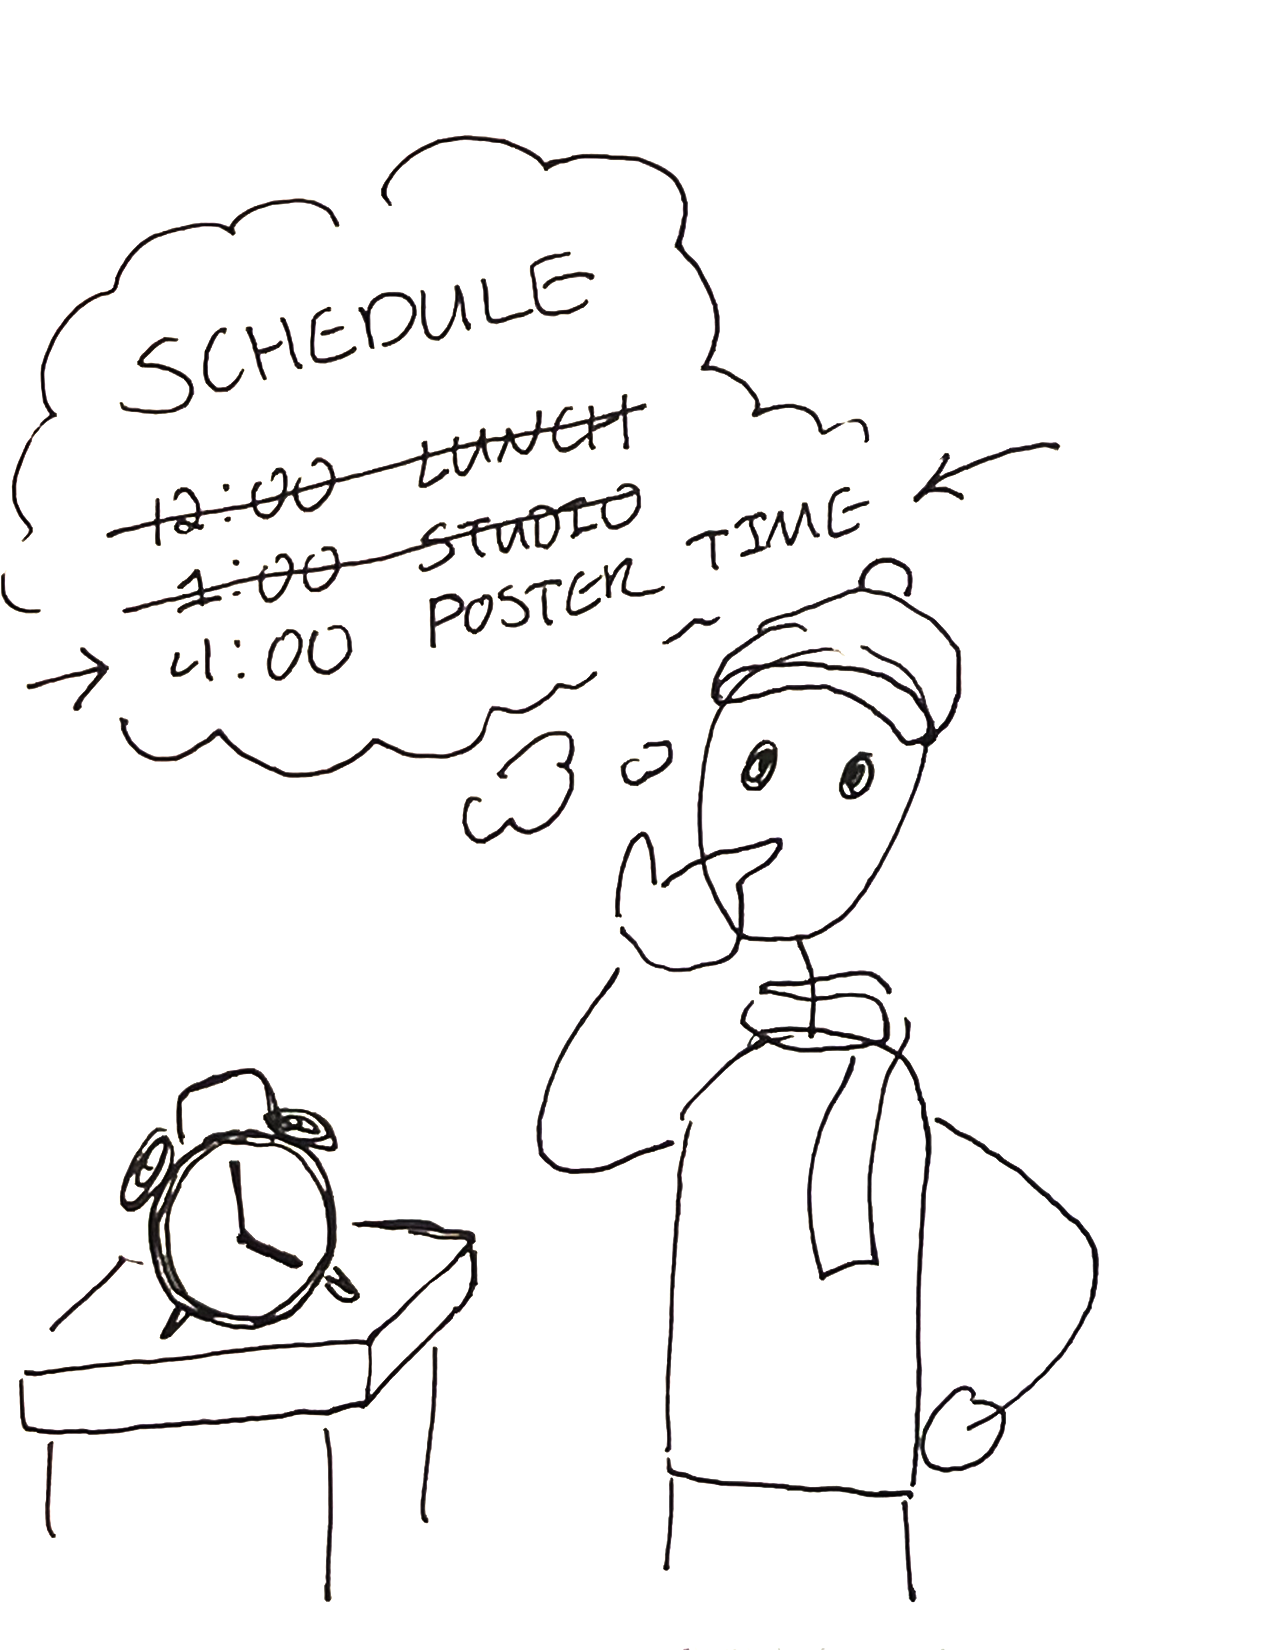 SCHEDULE
12:00 LUNCH
1:00 STUDIO
4:00 POSTER TIME